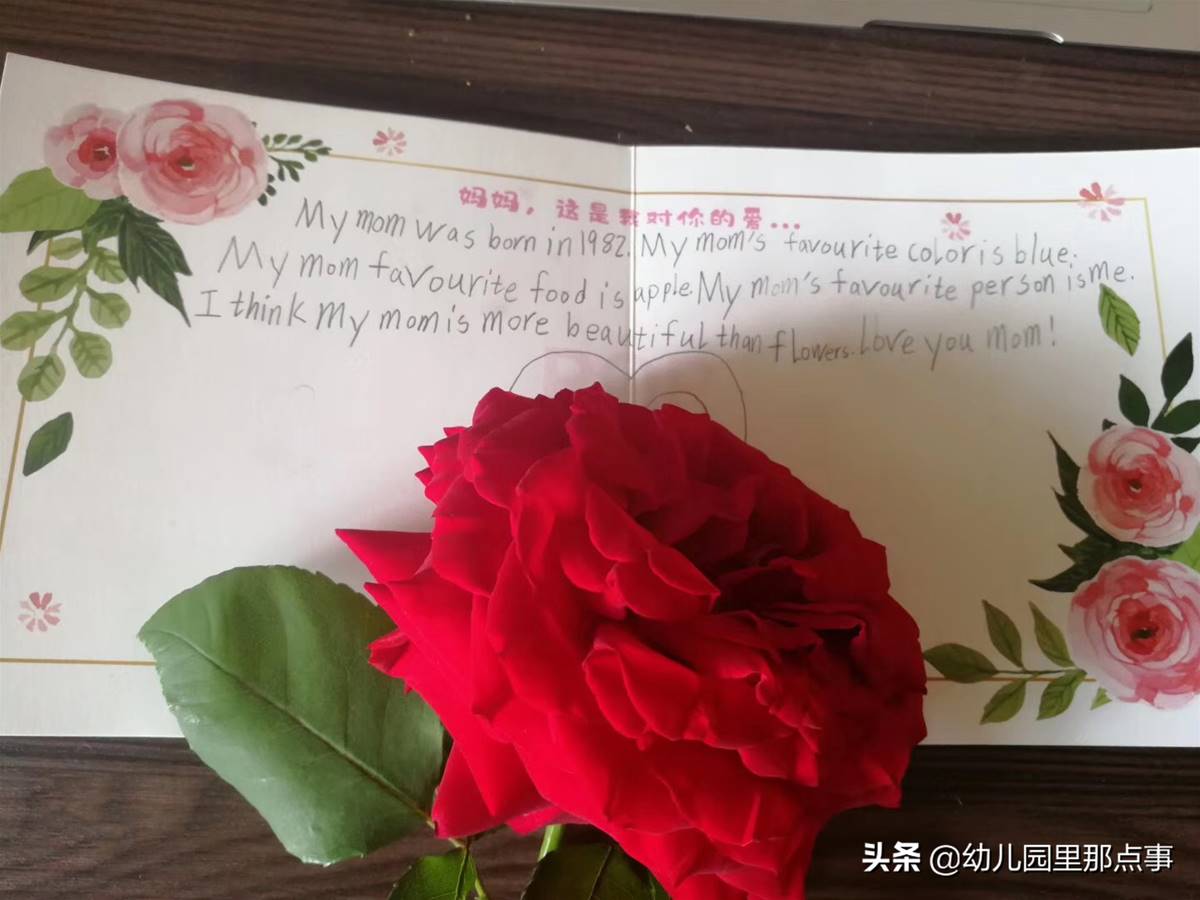 妈妈，这是我对你的爱...
My mom was born in 1982. My mom's favourite color is blue.
My mom favourite food is apple. My mom's favourite person is me.
I think My mom is more beautiful than flowers. love you mom!
头条 @幼儿园里那点事